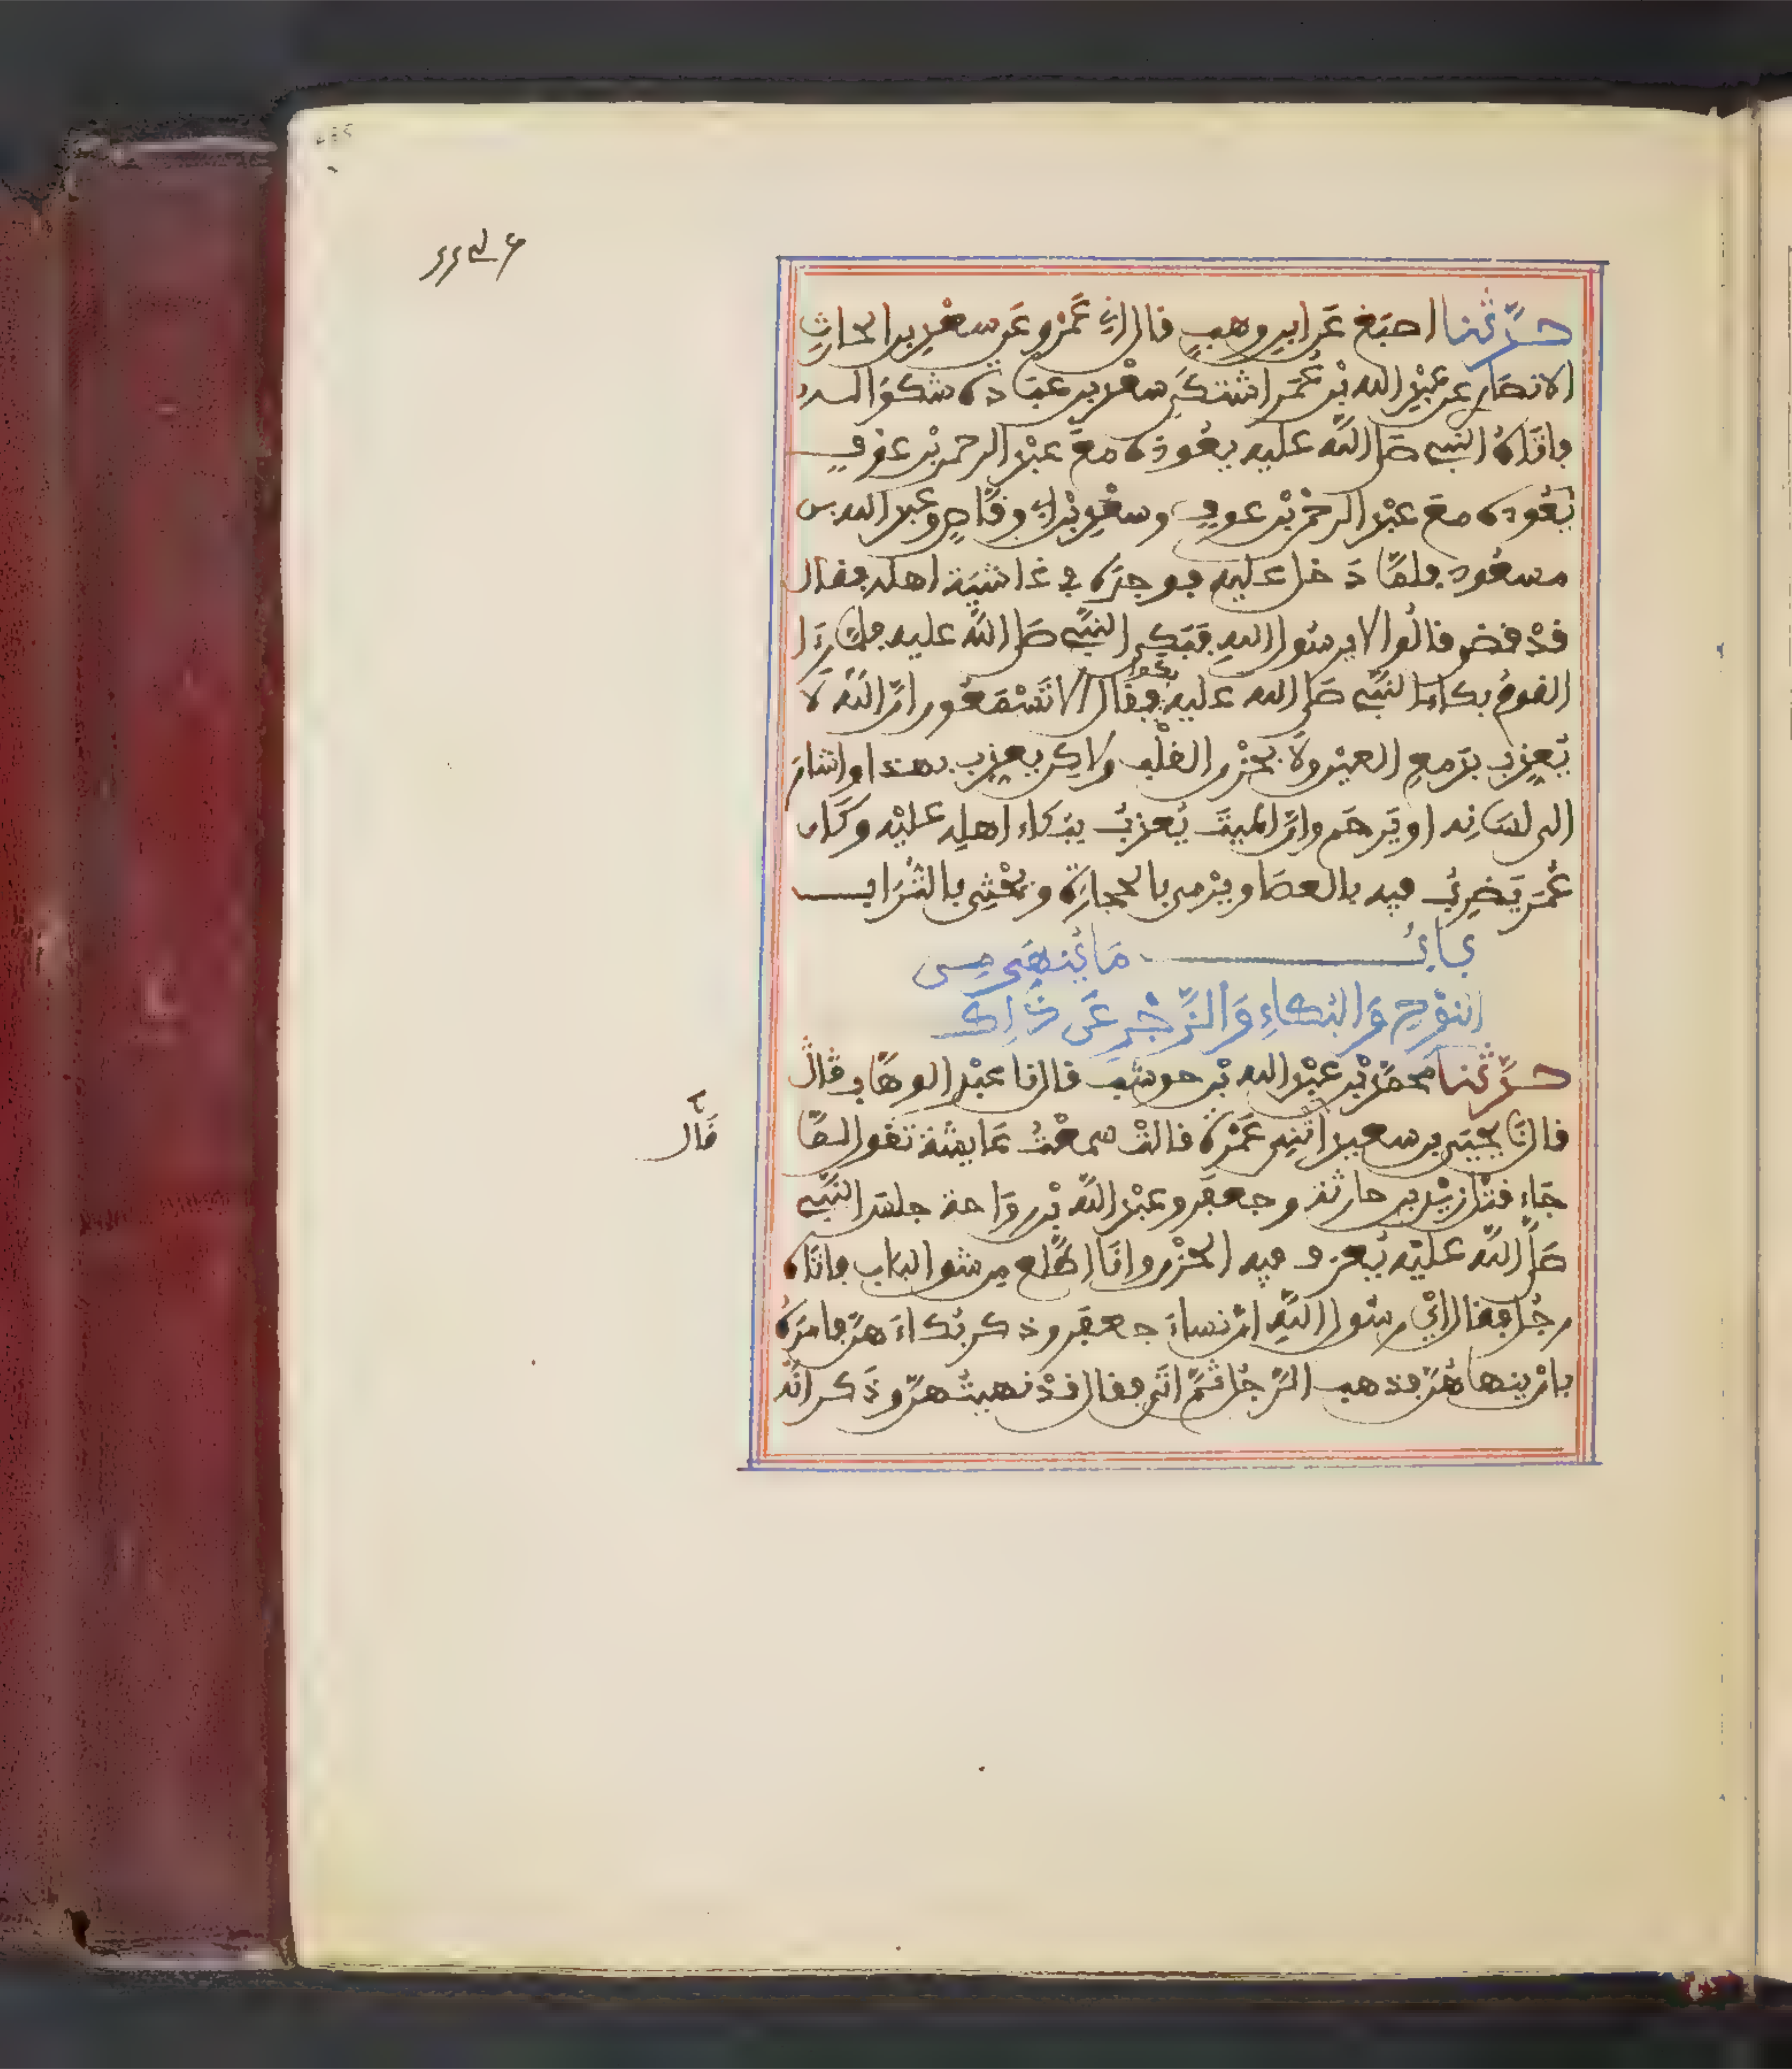 حدَّثنا اصبغ عَن ابن وهبٍ قال اني عَمْرو عَن سعْيد بن الحارث
الانصار عن عبْد الله بْن عُمَر اشتكَى سعْد بن عبَادة شكوَا له
فاتَاهُ النبي صَلى اللّه عليه يعُودهُ معَ عبْد الرحمن بْن عوْفٍ
يَعُوده معَ عبْد الرحْمن بْن عوف وسعْد بْن ابي وقَّاصٍ وعبد الله بن
مسعُود فلمَّا دَخل عليه فوجدَه في غاشيَة اهله فقال
قدْ قضى قالُوا لا يرسُول اللهِ فبَكى النبّي صَلى اللّه عليه فلمَّا رءَا
القومُ بكاءَ النبّي صَلى الله عليه بكوا فقَال الا تَسْمَعُون انَّ اللّه لَا
يُعذِب بدَمعِ العيْن ولَا بحُزْن القلْب ولاكِن يعذِب بهـذا واشارَ
الى لسَانِه او يَرحَم وانَّ الميتَ يُعذبُ ببُكاء اهلِه عليْه وكَان
عُمَر يَضرِبُ فيه بالعصَا ويرْمي بالحجارَة ويَحْثِي بالتُّرَاب
بابُ مَا يُنهَى من
النوْحِ وَالبُكاءِ وَالزَّجْرِ عَن ذَالِك
حدَّثنا محمَّد بْن عبْد الله بْن حوشب قال نا عبْد الوهَّاب قَال
قال نَا يحيَى بن سعيد اخْبرتني عَمْرَة قالتْ سمعْتُ عَايشَة تقُول لمَّا
قَال
جَاء قتْل زيْد بن حارثة وجعفَر وعبْد اللّه بْن روَاحة جلسَ النبّي
صَلى اللّه عليْه يُعرف فيه الحُزْن وانَا اطَّلع مِن شق الباب فاتَاه
رجُل فقال ايْ رسُول اللّهِ انّ نساءَ جعفَر وذكر بُكاءَ هنَّ فامرَهُ
بانْ ينهاهُنَّ فذهب الرَّجُل ثمَّ اتَى فقال قدْ نهيتُهنَّ وذَكر انَّه